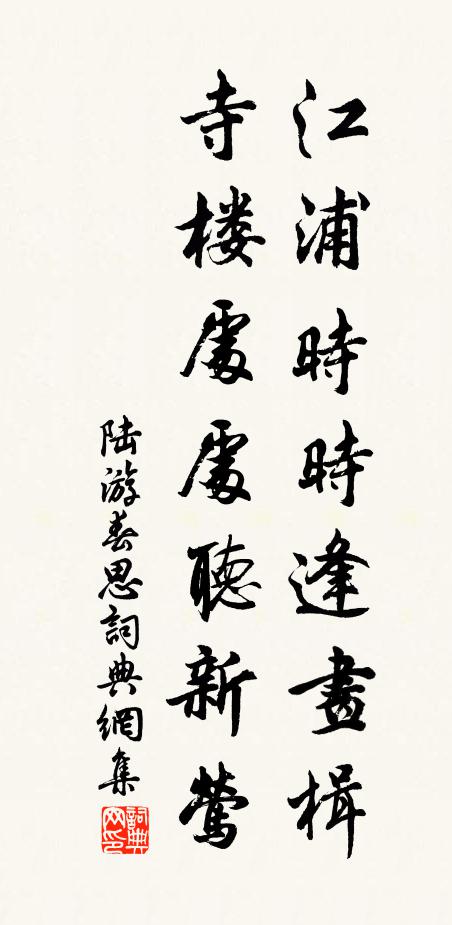 江浦時時逢畫楫
寺楼處處聽新莺
陆游春思詞典網集
詞典网印